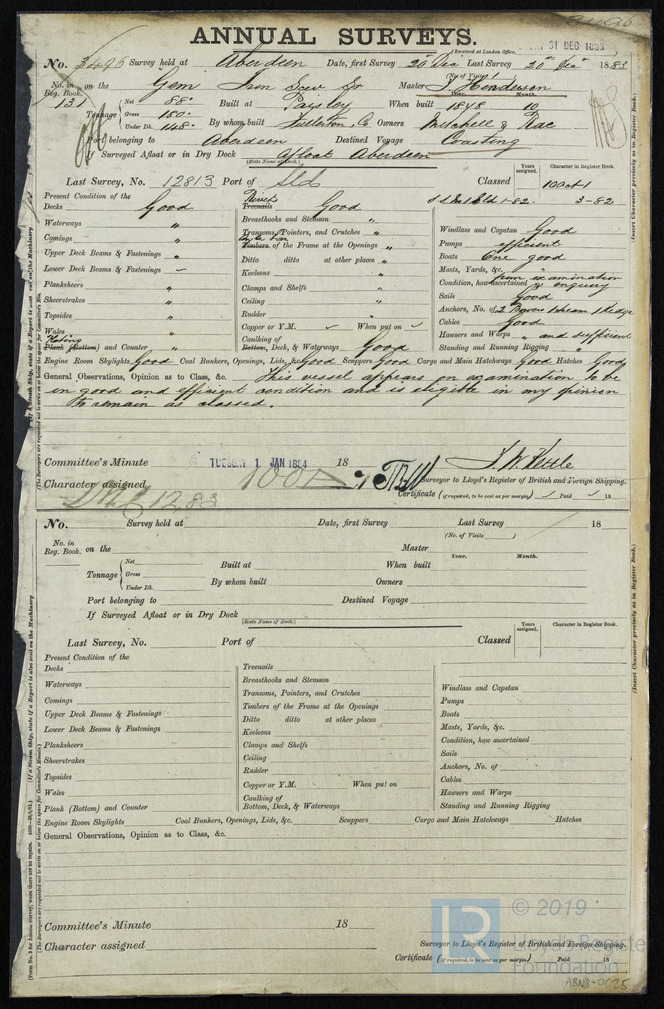 ANNUAL SURVEYS.
(Received at London Office, 31 DEC 1883
No. 3496 Survey held at Aberdeen Date, first Survey 20th Dec Last Survey 20th Dec 1883
(No. of Visits 1)
No. in Reg. Book. 131 on the Gem Iron Screw Sr Master J. Henderson
Year. Month.
Tonnage Net 88 Gross 150 Under Dk. 148 Built at Paisley When built 1878 10
By whom built Fullerton, Co Owners Mitchell & Rae
Port belonging to Aberdeen Destined Voyage Coasting
If Surveyed Afloat or in Dry Dock Afloat Aberdeen
(State Name of Dock.)
Years assigned. Character in Register Book.
Last Survey, No. 12813 Port of Sld Classed 100A1
3-82
Present Condition of the
Decks Good
Waterways "
Comings "
Upper Deck Beams & Fastenings "
Lower Deck Beams & Fastenings -
Planksheers "
Sheerstrakes "
Topsides "
Wales "
Plating Plank (Bottom) and Counter "
Rivets Treenails Good
Breasthooks and Stemson "
Transoms, Pointers, and Crutches "
Angle Iron Timbers of the Frame at the Openings "
Ditto ditto at other places "
Keelsons "
Clamps and Shelfs "
Ceiling "
Rudder "
Copper or Y.M. - When put on -
Caulking of Bottom, Deck, & Waterways Good
Windlass and Capstan Good
Pumps efficient
Boats One good
Masts, Yards, &c. "
Condition, how ascertained from examination & enquiry
Sails Good
Anchors, No. of 2 Bowers 1 stream 1 kedge
Cables Good
Hawsers and Warps " and sufficient
Standing and Running Rigging "
Engine Room Skylights Good Coal Bunkers, Openings, Lids, &c. Good Scuppers Good Cargo and Main Hatchways Good Hatches Good
General Observations, Opinion as to Class, &c. This vessel appears on examination to be
in good and efficient condition and is eligible in my opinion
to remain as classed.
Committee's Minute TUESDAY 1 JAN 1884 18
J. W. Kettle
Character assigned 100A1
Surveyor to Lloyd's Register of British and Foreign Shipping.
Certificate (if required, to be sent as per margin) Paid 18
12.83
No. Survey held at Date, first Survey Last Survey 18
(No. of Visits )
No. in Reg. Book. on the Master
Year. Month.
Tonnage Net Gross Under Dk. Built at When built
By whom built Owners
Port belonging to Destined Voyage
If Surveyed Afloat or in Dry Dock
(State Name of Dock.)
Years assigned. Character in Register Book.
Last Survey, No. Port of Classed
Present Condition of the
Decks
Waterways
Comings
Upper Deck Beams & Fastenings
Lower Deck Beams & Fastenings
Planksheers
Sheerstrakes
Topsides
Wales
Plank (Bottom) and Counter
Treenails
Breasthooks and Stemson
Transoms, Pointers, and Crutches
Timbers of the Frame at the Openings
Ditto ditto at other places
Keelsons
Clamps and Shelfs
Ceiling
Rudder
Copper or Y.M. When put on
Caulking of Bottom, Deck, & Waterways
Windlass and Capstan
Pumps
Boats
Masts, Yards, &c.
Condition, how ascertained
Sails
Anchors, No. of
Cables
Hawsers and Warps
Standing and Running Rigging
Engine Room Skylights Coal Bunkers, Openings, Lids, &c. Scuppers Cargo and Main Hatchways Hatches
General Observations, Opinion as to Class, &c.
Committee's Minute 18
Character assigned
Surveyor to Lloyd's Register of British and Foreign Shipping.
Certificate (if required, to be sent as per margin) Paid 18
(Insert Character precisely as in Register Book.)
(Insert Character precisely as in Register Book.)
LR © 2019
Lloyd's Register
Foundation
ABN8-0025